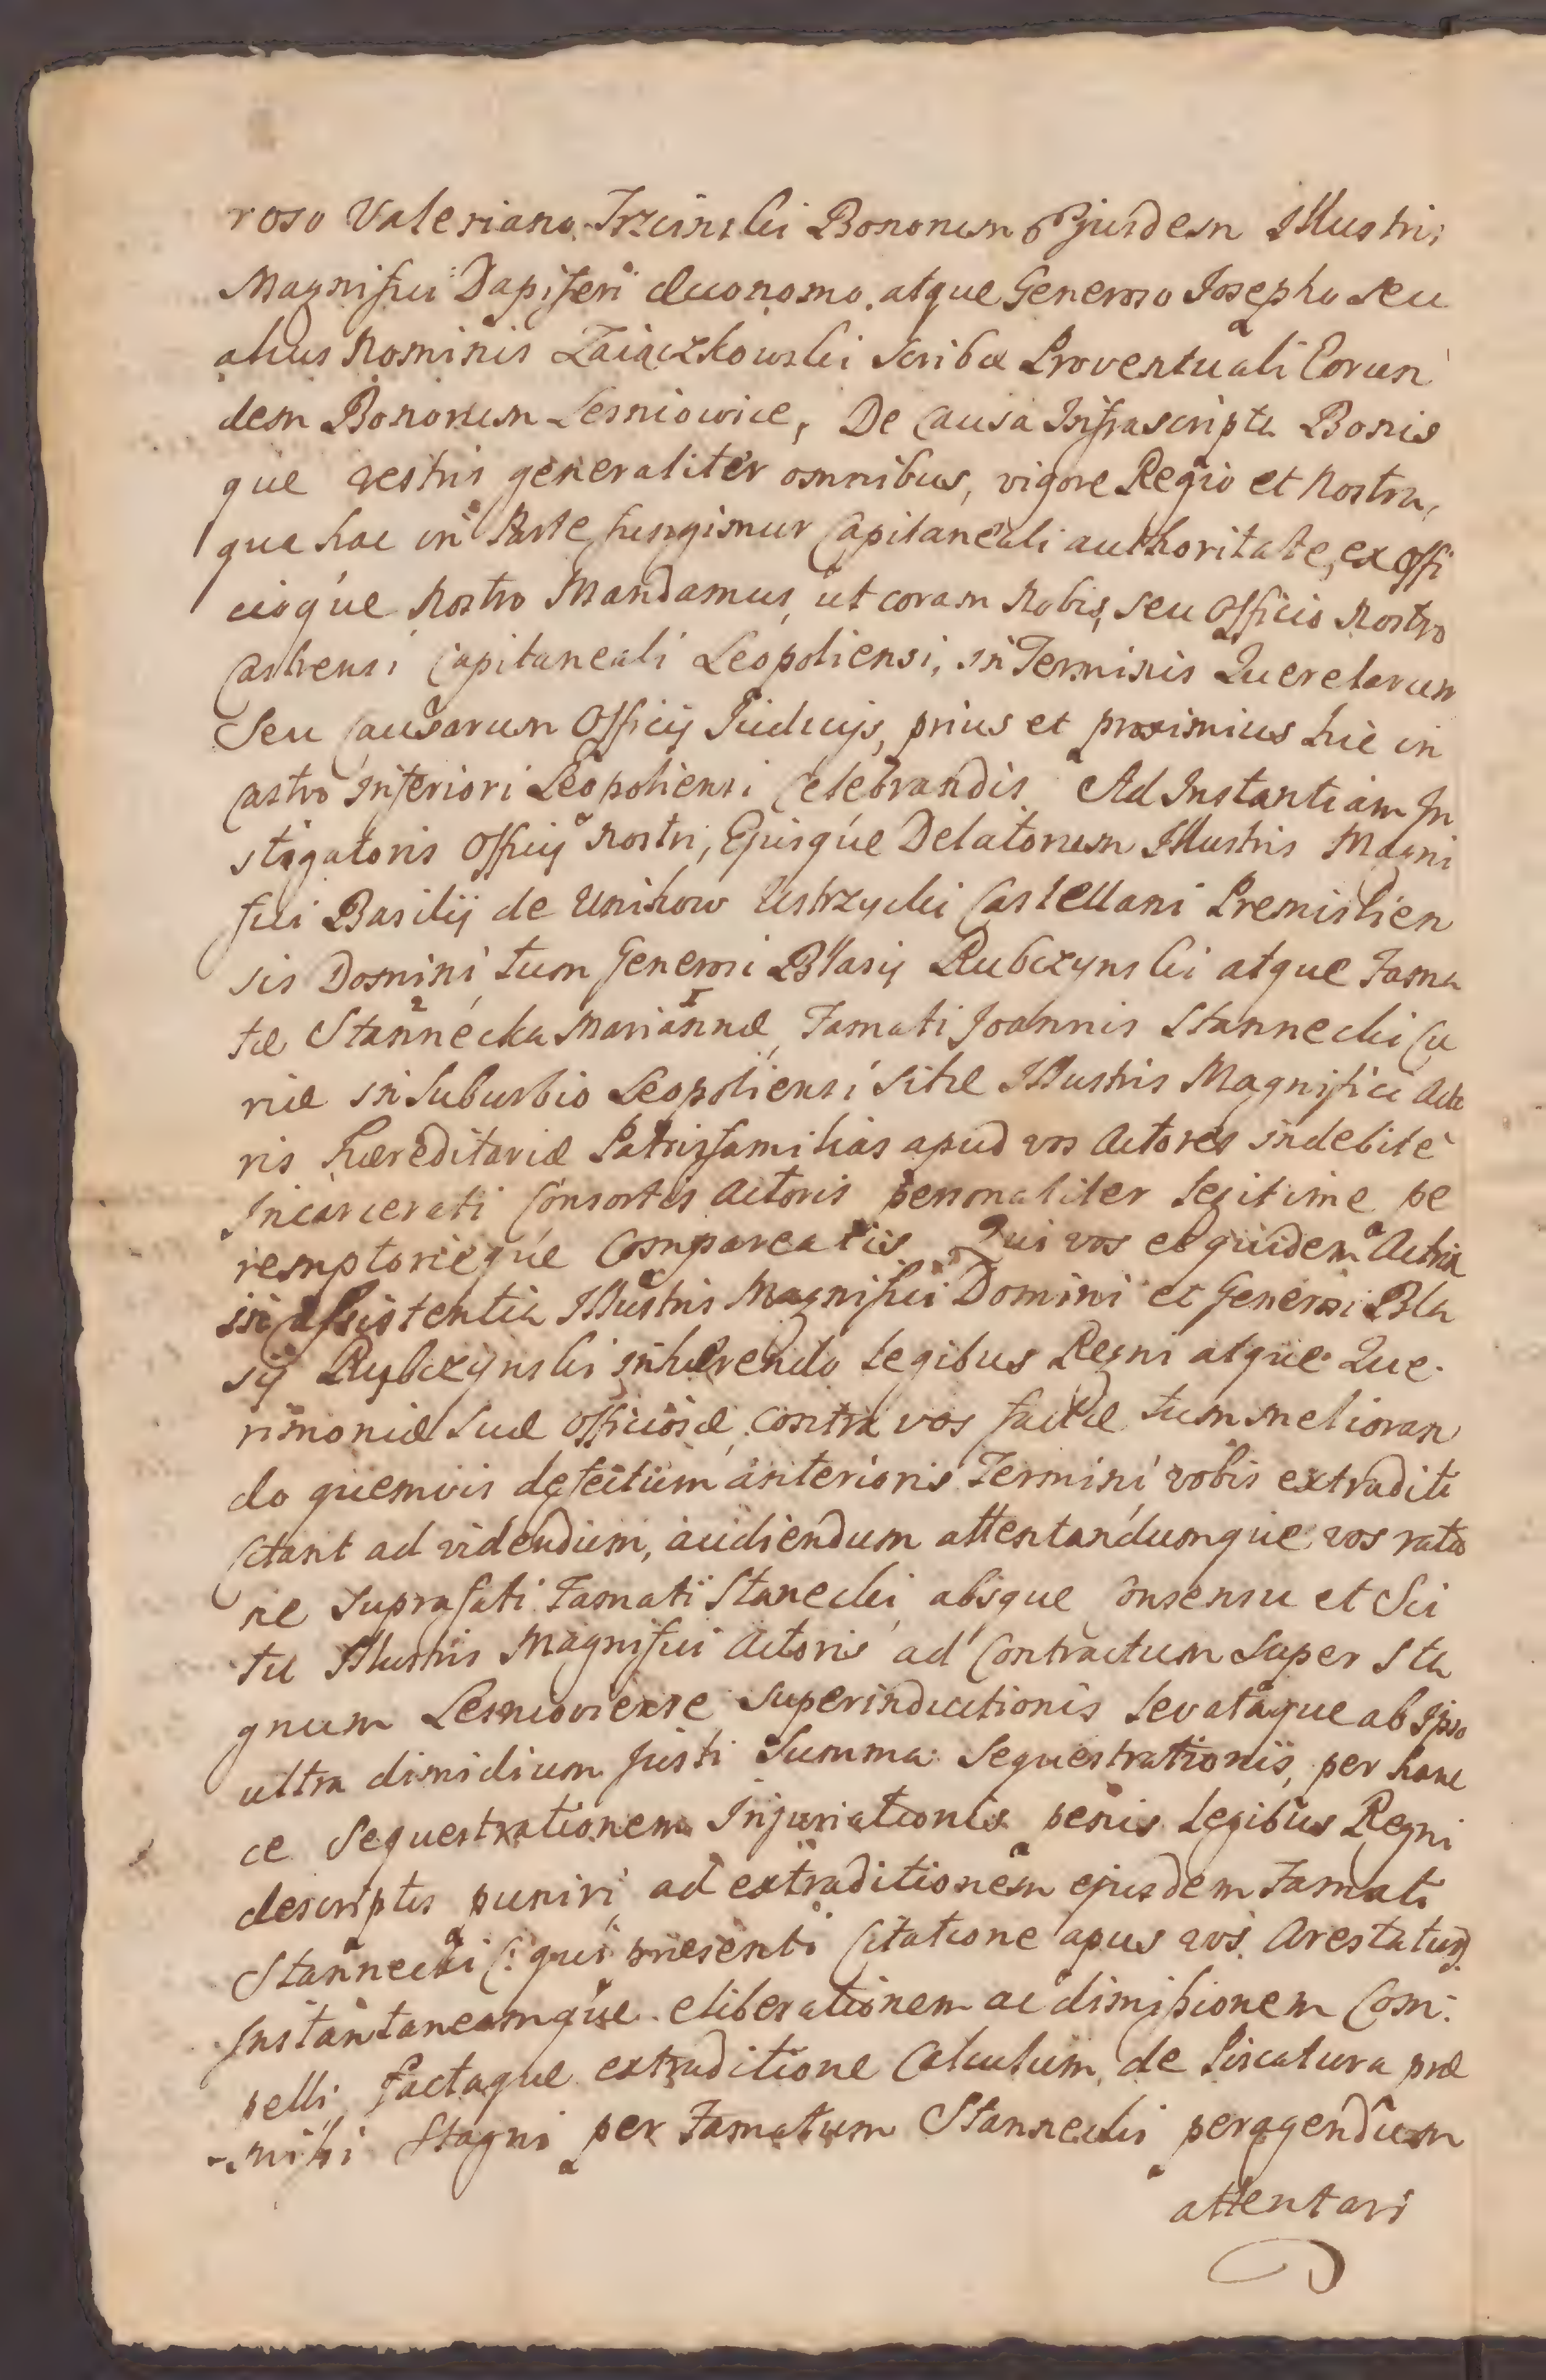 roso Valeriano Trzcinski Bonorum Ejusdem Illustris
Magnifici Dapiferi Œconomo, atque Generoso Josepho seu
alius Nominis Zaiączkowski Scribæ Proventuali Eorun
dem Bonorum Lesniowice, De Causa Infrascripta Bonis
que vestris generaliter omnibus, vigore Regio et Nostra,
qua hac in Parte fungimur Capitaneali authoritate, ex Offi
cioque Nostro Mandamus, ut coram Nobis, seu Officio Nostro
Castrensi Capitaneali Leopoliensi, in Terminis Querelarum
Seu Causarum Officij Judicijs, prius et proximius hic in
Castro Inferiori Leopoliensi Celebrandis Ad Instantiam In
stigatoris Officij Nostri, Ejusque Delatorum Illustris Magni
fici Basilij de Unichow Ustrzycki Castellani Premislien
sis Domini tum Generosi Blasij Rubczynski atque Fama
tæ Stannecka Mariannæ, Famati Joannis Stannecki Cu
riæ in Suburbio Leopoliensi sitæ Illustris Magnifici Acto
ris hæreditariæ Patrisfamilias apud vos Actores indebite
Incarcerati Consortis Actoris personaliter legitime pe
remptorieque Compareatis Qui vos et quidem Actrix
in Assistentia Illustris Magnifici Domini et Generosi Bla
sij Rybczynski inhærendo Legibus Regni atque Que
rimoniæ Suæ Officiosæ contra vos factæ tum melioran
do quemvis defectum anterioris Termini vobis extraditi
Citant ad videndum, audiendum attentandumque vos ratio
ne Suprafati Famati Stanecki absque Consensu et Sci
tu Illustris Magnifici Actoris ad Contractum Super Sta
gnum Lesnioviense Superinductionis Levataque ab Ipso
ultra dimidium justi Summa Sequestrationis, per hanc
ce Sequestrationem Injuriationis penis Legibus Regni
descriptis puniri, ad extraditionem ejusdem Famati
Stannecki (: qui præsenti Citatione apus vos Arestatur :)
Instantaneamque eliberationem ac dimissionem Com
pelli, factaque extraditione Calculum, de Piscatura præ
missi Stagni per Famatum Stannecki peragendum
attentari